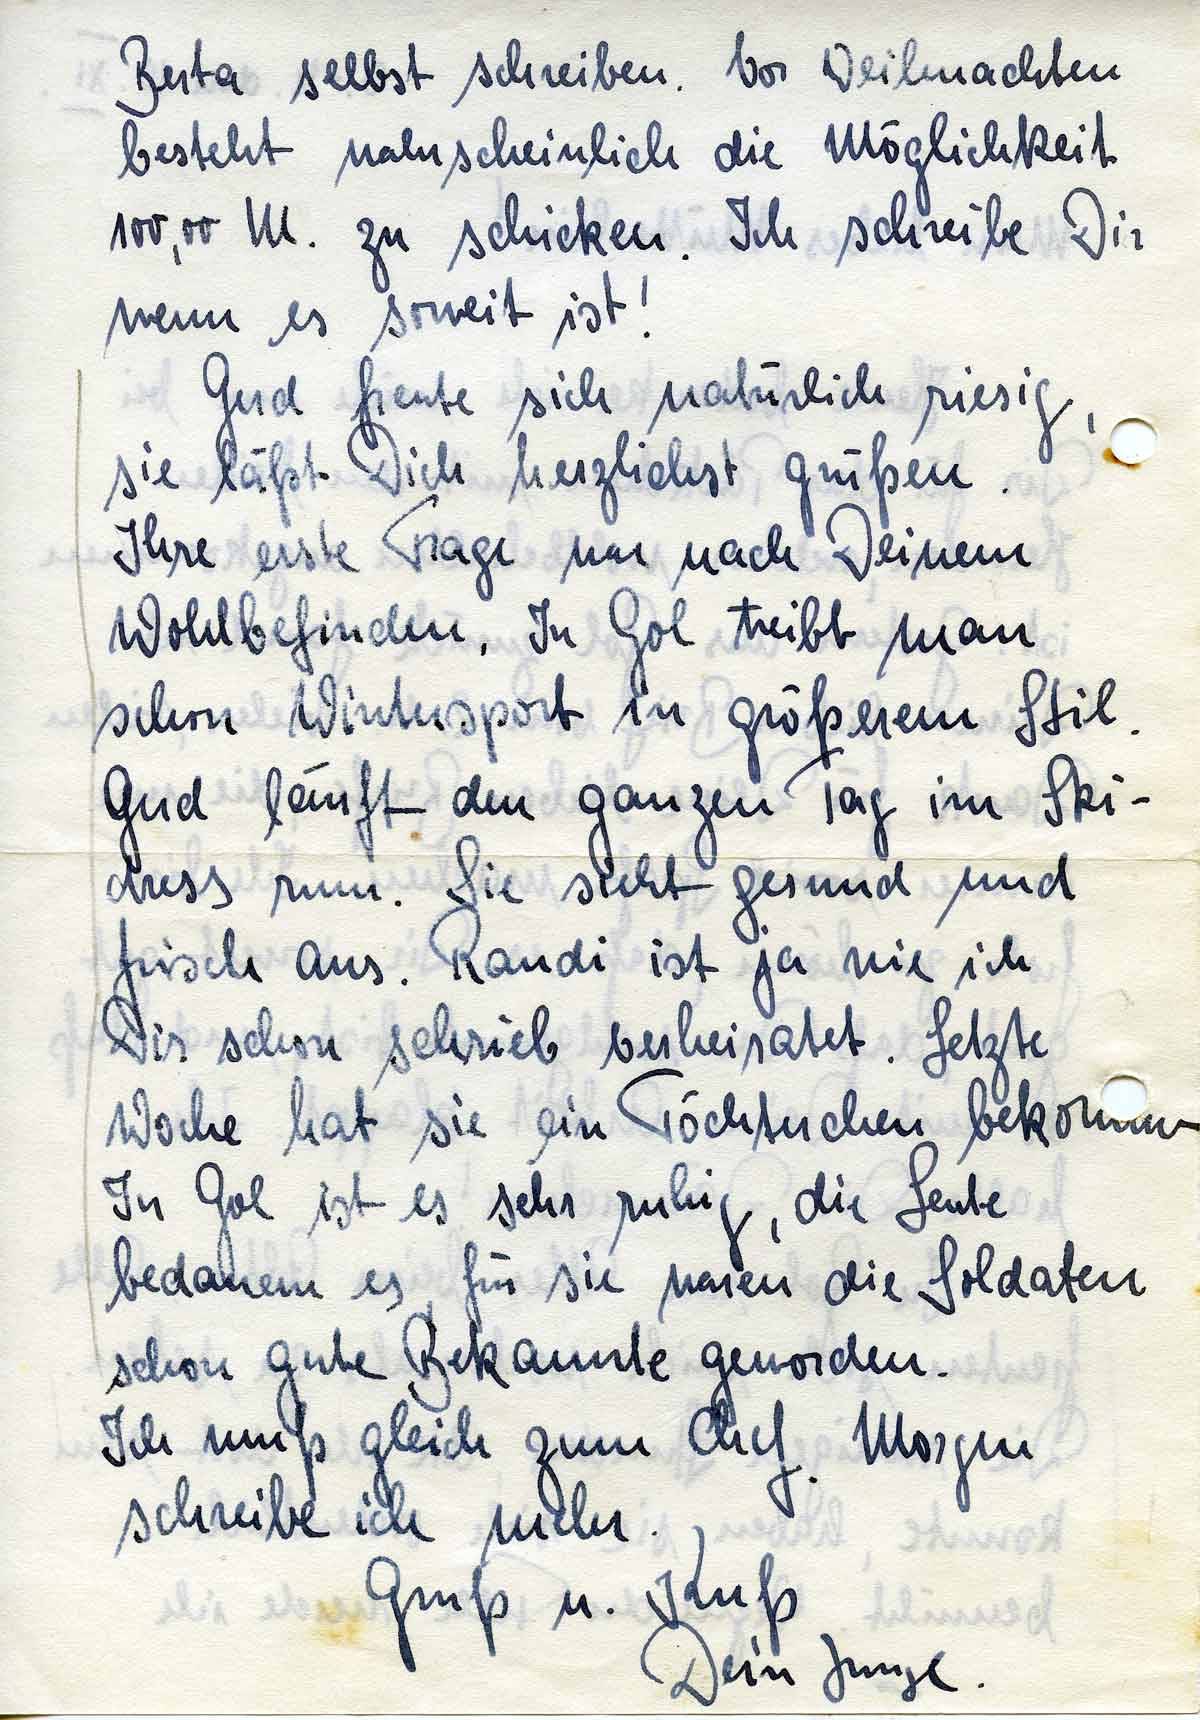 Berta selbst schreiben. Vor Weihnachten
besteht wahrscheinlich die Möglichkeit
100,00 M. zu schicken. Ich schreibe Dir
wenn es soweit ist!
Gud freute sich natürlich riesig,
sie läßt Dich herzlichst grüßen.
Ihre erste Frage war nach Deinem
Wohlbefinden. In Gol treibt man
schon Wintersport in größerem Stil.
Gud läuft den ganzen Tag im Ski-
dress rum. Sie sieht gesund und
frisch aus. Randi ist ja wie ich
Dir schon schrieb verheiratet. Letzte
Woche hat sie ein Töchterchen bekommen
In Gol ist es sehr ruhig, die Leute
bedauern es, für sie waren die Soldaten
schon gute Bekannte geworden.
Ich muß gleich zum Chef. Morgen
schreibe ich mehr.
Gruß u. Kuß
Dein Junge.